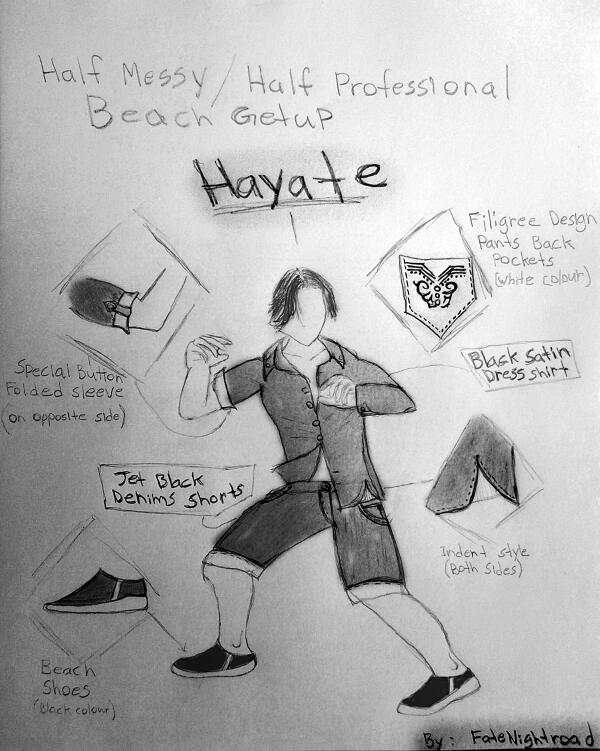 Half Messy / Half Professional
Beach Getup
Hayate
Filigree Design
Pants Back
Pockets
(white colour)
Special Button
Folded sleeve
(on opposite side)
Black Satin
Dress shirt
Jet Black
Denims Shorts
Indent style
(Both Sides)
Beach
Shoes
(Black colour)
By: FateNightroad